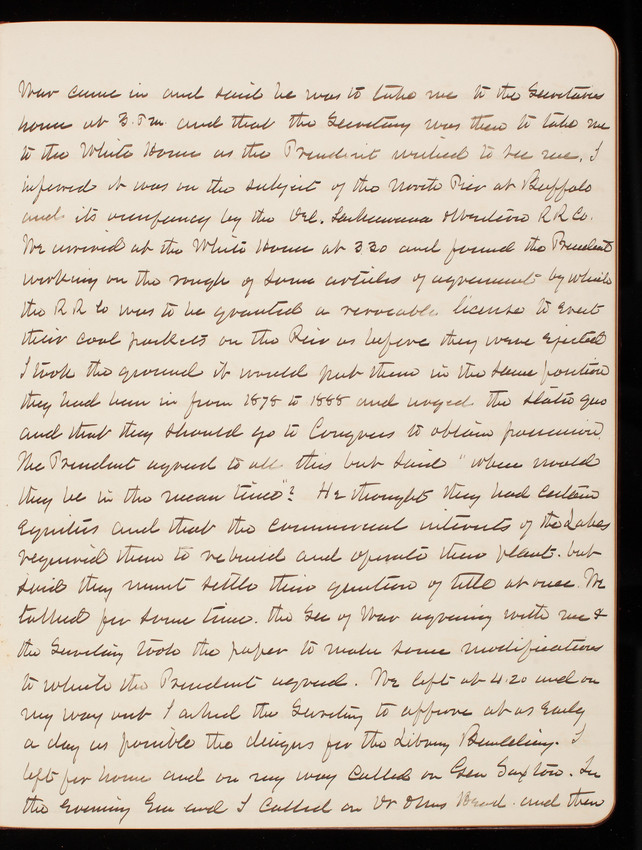 War came in and said he was to take me to the Secretarys
house at 3. P m. and that the Secretary was then to take me
to the White House as the President wished to see me. I
infered it was on the subject of the North Pier at Buffalo
and its occupancy by the Del. Lackawanna & Western R R Co.
We arrived at the White House at 3 30 and found the President
working on the rough of some articles of agreement by which
the R R Co was to be granted a revocable license to erect
their coal pockets on the Pier as before they were ejected
I took the ground it would put them in the same position
they had been in from 1878 to 1888 and urged the statu quo
and that they should go to Congress to obtain possession.
The President agreed to all this but said "where would
they be in the mean time"? He thought they had certain
Equities and that the commercial interests of the Lakes
required them to rebuild and operate their plant. but
said they must settle their question of title at once. We
talked for some time. the Sec of War agreeing with me &
the Secretary took the paper to make some modifications
to which the President agreed. We left at 4.20 and on
my way out I asked the Secretary to approve at as early
a day as possible the designs for the Library Building. I
left for home and on my way called on Gen Saxton. In
the evening and I called on Dr and then